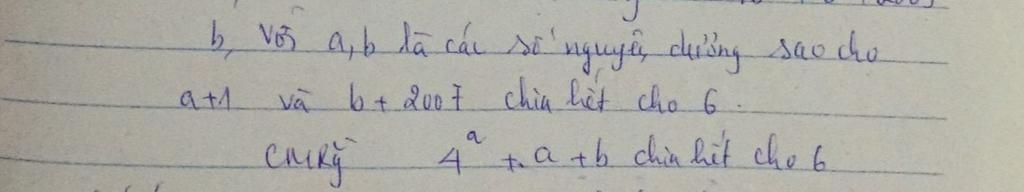 b, Với a, b là các số nguyên dương sao cho
a+1 và b + 2007 chia hết cho 6.
CMRỹ 4^a + a + b chia hết cho 6